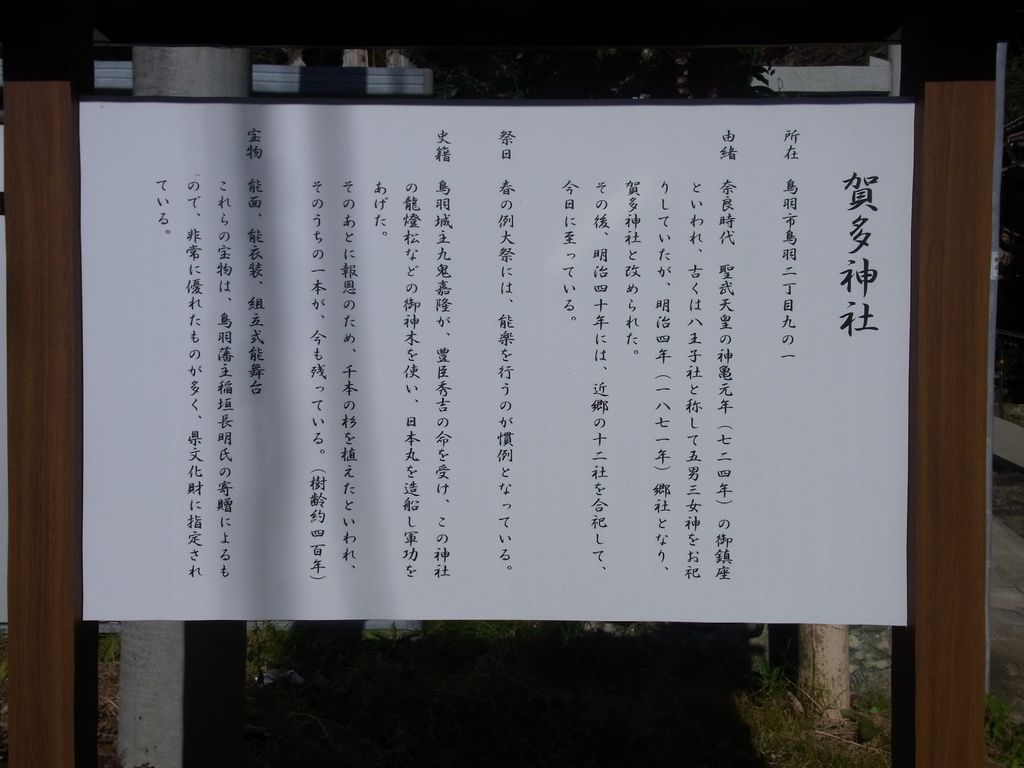 賀多神社
所在 鳥羽市鳥羽二丁目九の一
由緒 奈良時代 聖武天皇の神亀元年（七二四年）の御鎮座
といわれ、古くは八王子社と称して五男三女神をお祀
りしていたが、明治四年（一八七一年）郷社となり、
賀多神社と改められた。
その後、明治四十年には、近郷の十二社を合祀して、
今日に至っている。
祭日 春の例大祭には、能楽を行うのが慣例となっている。
史籍 鳥羽城主九鬼嘉隆が、豊臣秀吉の命を受け、この神社
の龍燈松などの御神木を使い、日本丸を造船し軍功を
あげた。
そのあとに報恩のため、千本の杉を植えたといわれ、
そのうちの一本が、今も残っている。（樹齢約四百年）
宝物 能面、能衣装、組立式能舞台
これらの宝物は、鳥羽藩主稲垣長明氏の寄贈によるも
ので、非常に優れたものが多く、県文化財に指定され
ている。